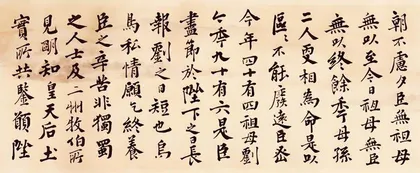 朝不慮夕臣無祖母
無以至今日祖母無臣
無以終餘秊母孫
二人更相為命是以
區〻不能廢遠臣密
今年四十有四祖母劉
今秊九十有六是臣
盡節於陛下之日長
報劉之日短也烏
鳥私情願乞終養
臣之辛苦非獨蜀
之人士及二州牧伯所
見明知皇天后土
實所共鑒願陛